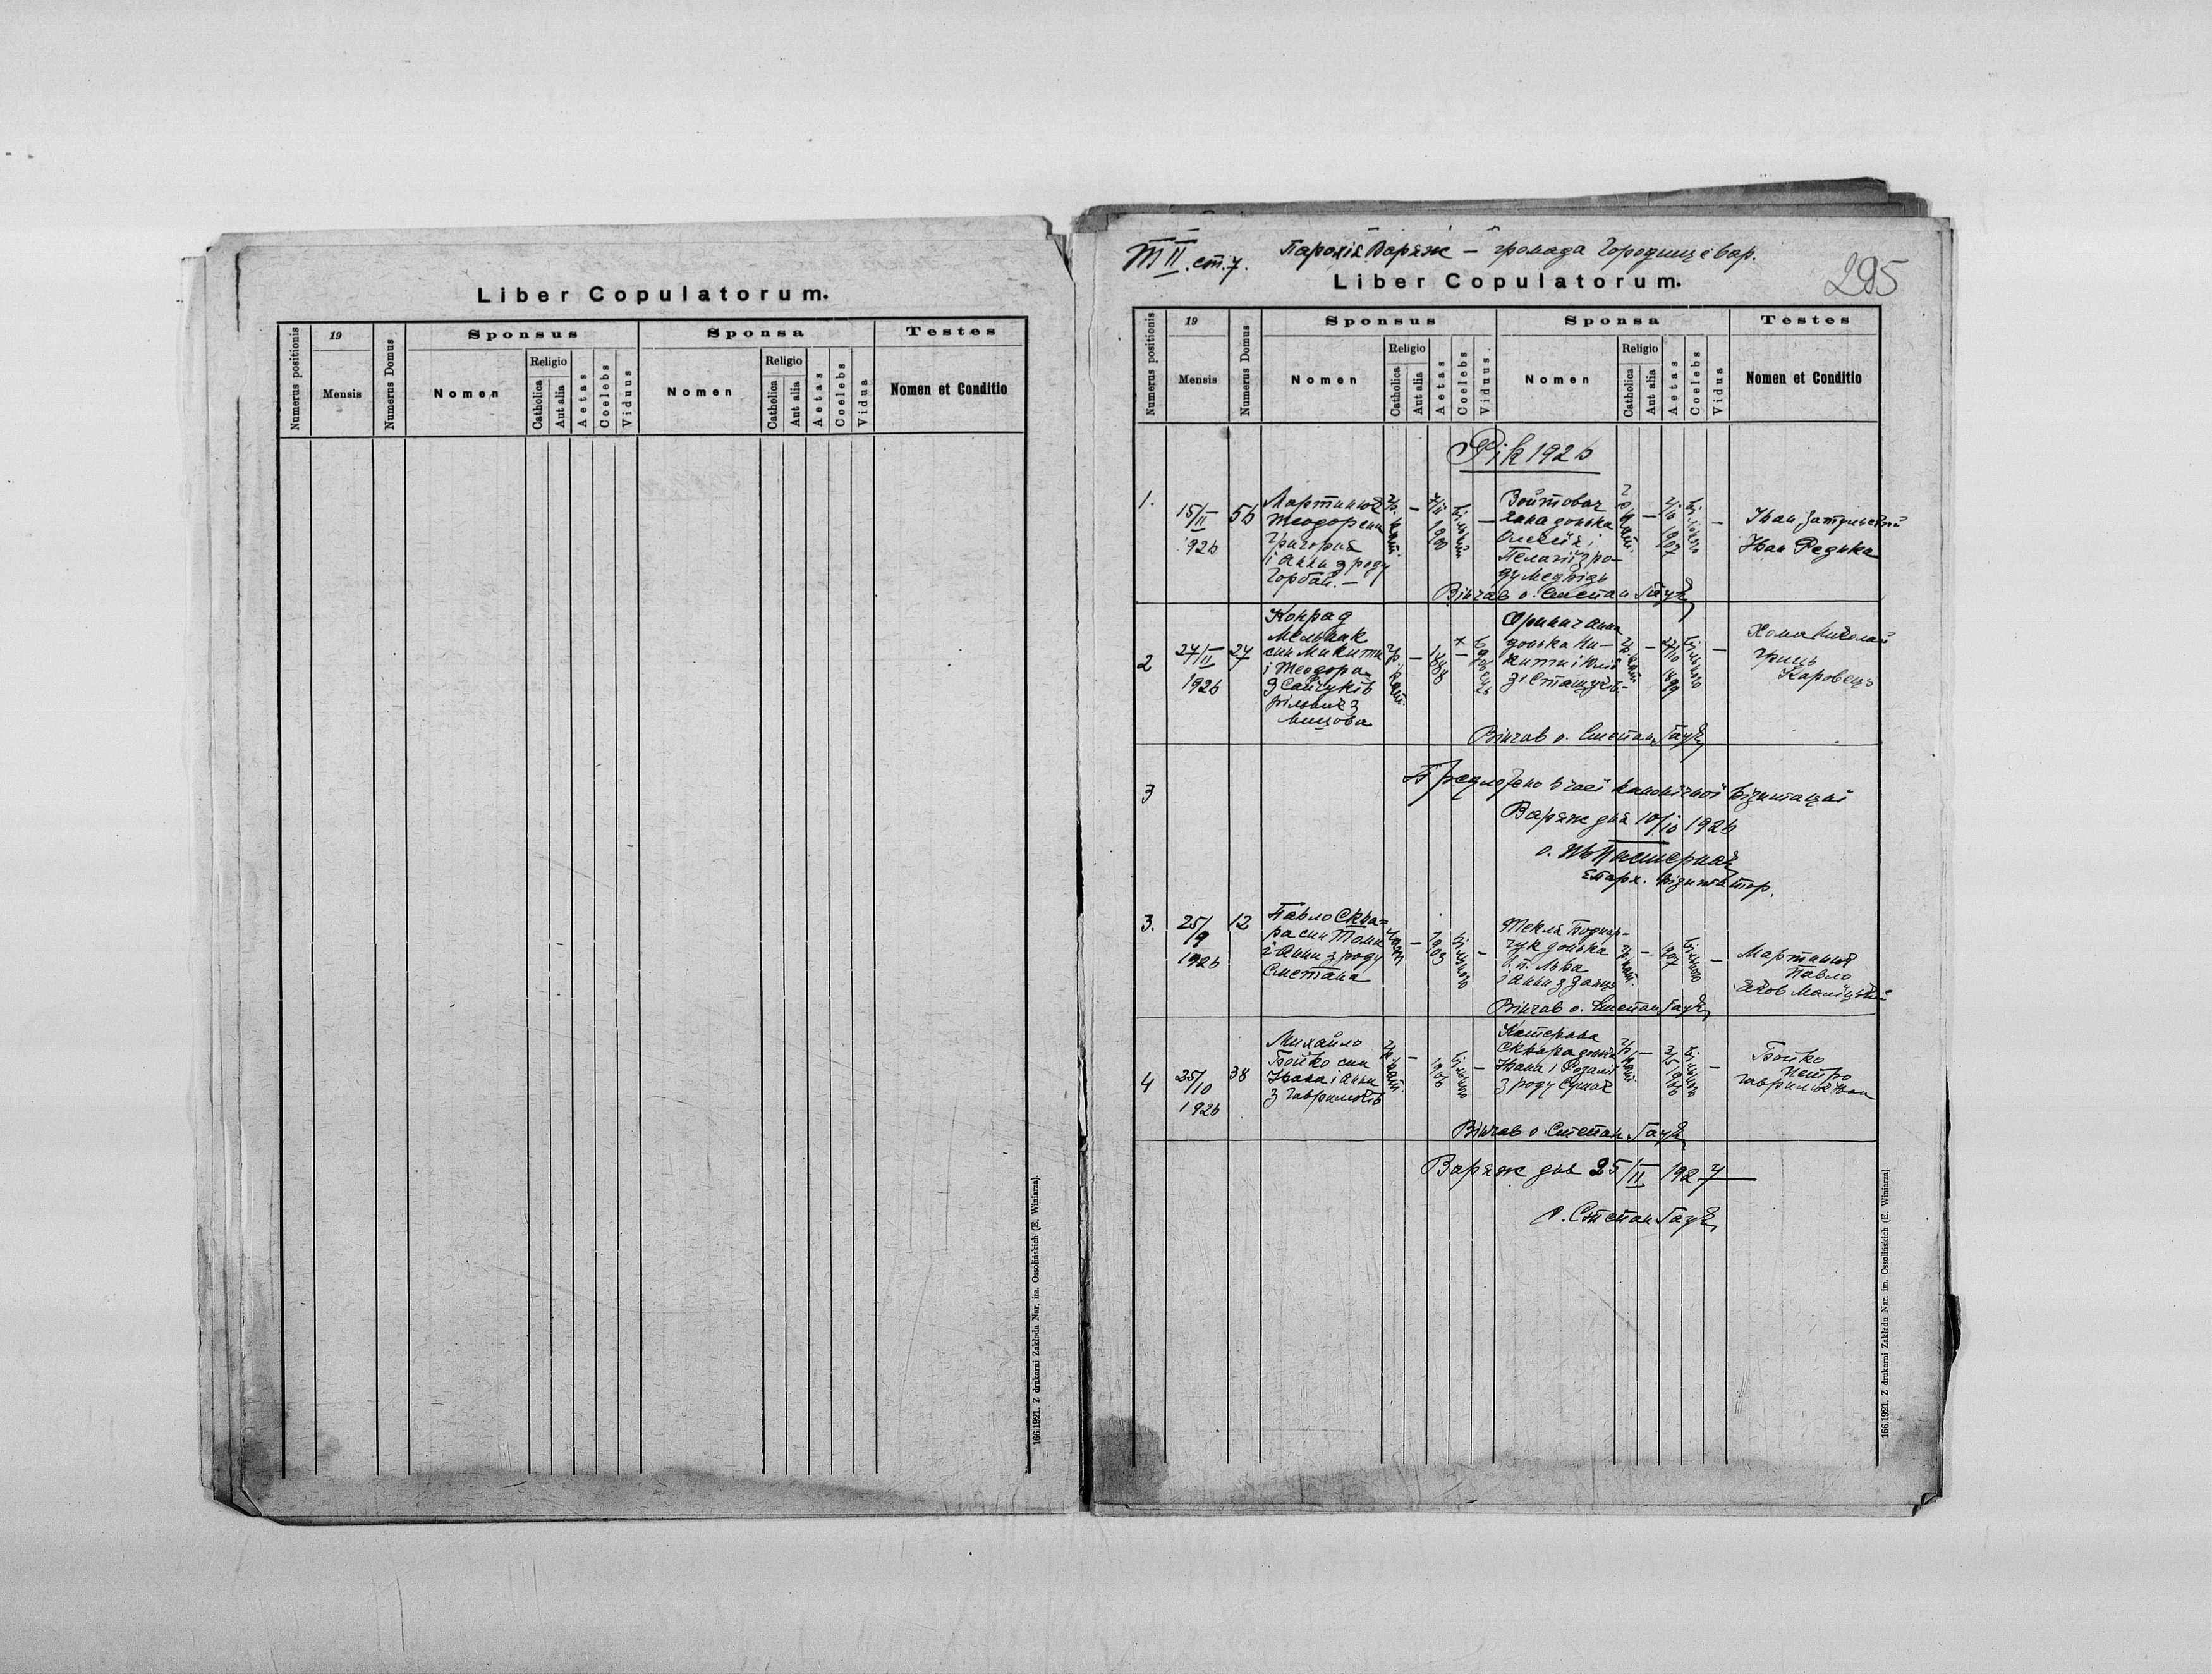 Liber Copulatorum.
Numerus positionis
19
Mensis
Numerus Domus
Sponsus
Nomen
Religio
Catholica
Aut alia
Aetas
Coelebs
Viduus
Sponsa
Nomen
Religio
Catholica
Aut alia
Aetas
Coelebs
Vidua
Testes
Nomen et Conditio
166.1921. Z drukarni Zakładu Nar. im. Ossolińskich (E. Winiarza).
Т II. ст. 7. Парохія Варяж — громада Городище вар.
295
Liber Copulatorum.
Numerus positionis
19
Mensis
Numerus Domus
Sponsus
Nomen
Religio
Catholica
Aut alia
Aetas
Coelebs
Viduus
Sponsa
Nomen
Religio
Catholica
Aut alia
Aetas
Coelebs
Vidua
Testes
Nomen et Conditio
Рік 1926
1.
15/II
1926
56
Мартинюк
Теодор син
Григорія
і Анни з роду
Горбай. —
гр. кат.
—
1900
—
Войтович
Анна донька
Олексія і
Пелагії з ро-
ду Медвідь
—
1907
—
Іван
Іван Редька
Вінчав о. Степан
2
27/II
1926
27
Конрад
Мельник
син Микити
і Теодора
з Сайчуків
рільник з
гр. кат.
—
1888
Анна
донька Ми-
кити і Юлії
зі Сташуків
гр. кат.
—
27/10
1899
—
Хома Николай
Гриць
Каровець
Вінчав о. Степан
3
Предложено в часі канонічної візитації
Варяж дня 10/10 1926
о. Пастернак
Епарх. візитатор.
3.
25/9
1926
12
Павло Сква-
ра син Томи
і Анни з роду
Сметана
—
1903
—
Текля Боднар-
чук донька
б. п. Льва
і Анни з Заяць
гр. кат.
—
1907
—
Мартинюк
Павло
Яков
Вінчав о. Степан
4
25/10
1926
38
Михайло
Бойко син
Івана і Анни
з Гаврилюків
гр. кат.
—
1906
—
Катерина
Сквара донька
Івана і Розалії
з роду
гр. кат.
—
1906
—
Бойко
Петро
Гаврилюк Іван
Вінчав о. Степан
Варяж дня 25/II 1927
о. Степан
166.1921. Z drukarni Zakładu Nar. im. Ossolińskich (E. Winiarza)